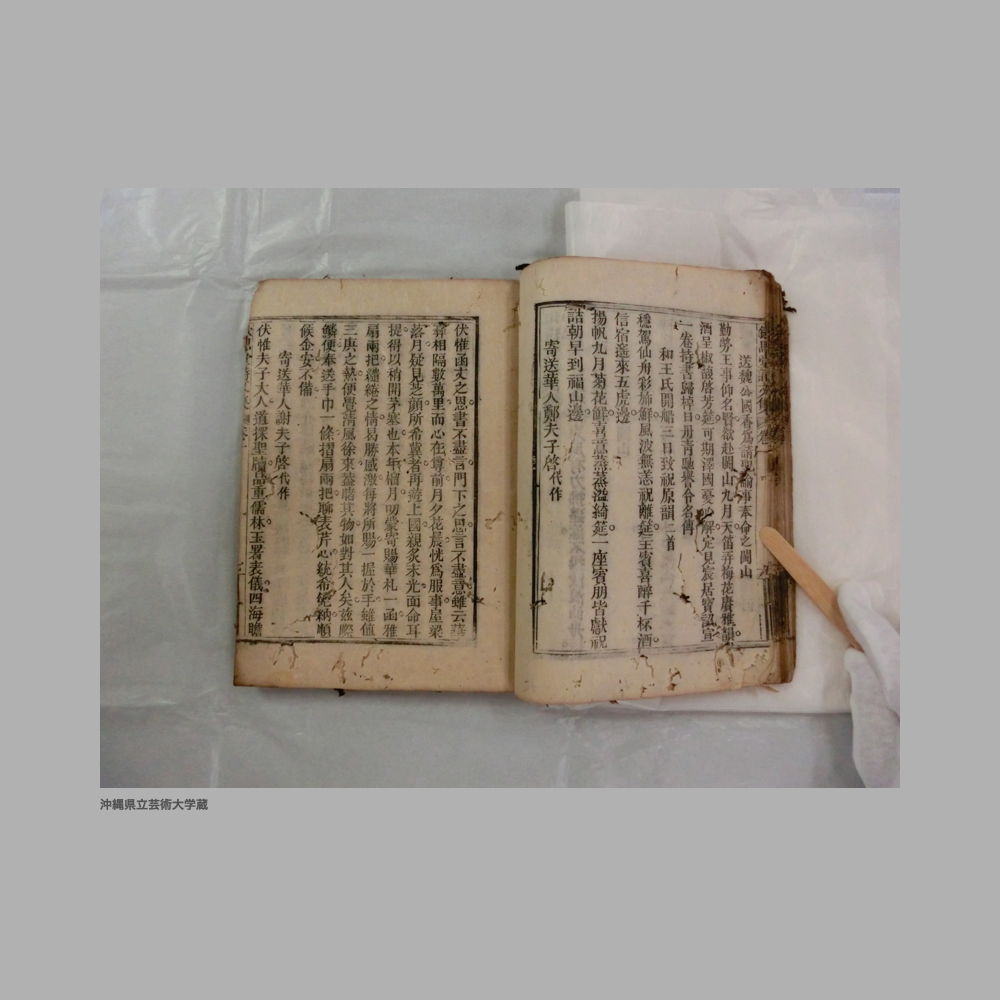 送魏公國香為請諭事奉命之閩山
勤勞王事仰名賢欲赴閩山九月天笛弄梅花賡雅韻
酒呈椒醑啓芳筵可期澤國憂心解定見宸居寶詔宣
一卷持書歸棹日册青馳譽令名傳
和王氏開船三日致祝原韻二首
穩駕仙舟彩斾鮮風波無恙祝離筵主賓喜醉千杯酒
信宿遙來五虎邊
揚帆九月菊花鮮喜意蒸蒸溢綺筵一座賓朋皆獻祝
詰朝早到福山邊
寄送華人鄭夫子啓代作
伏惟函丈之恩書不盡言門下之思言不盡意雖云
相隔數萬里而心在尊前月夕花晨恍為服事屋梁
落月疑見芝顏所希冀者再遊上國親炙末光面命耳
提得以稍開茅塞也本年榴月叨蒙寄賜華札一函雅
扇兩把繾綣之情曷勝感激每將所賜一握於手雖值
三庚之熱便覺清風徐來益睹其物如對其人矣茲際
鱗便奉送手巾一條摺扇兩把聊表芹心統希笑納順
候金安不備
寄送華人謝夫子啓代作
伏惟夫子大人道探聖牘品重儒林玉署表儀四海瞻
沖縄県立芸術大学蔵